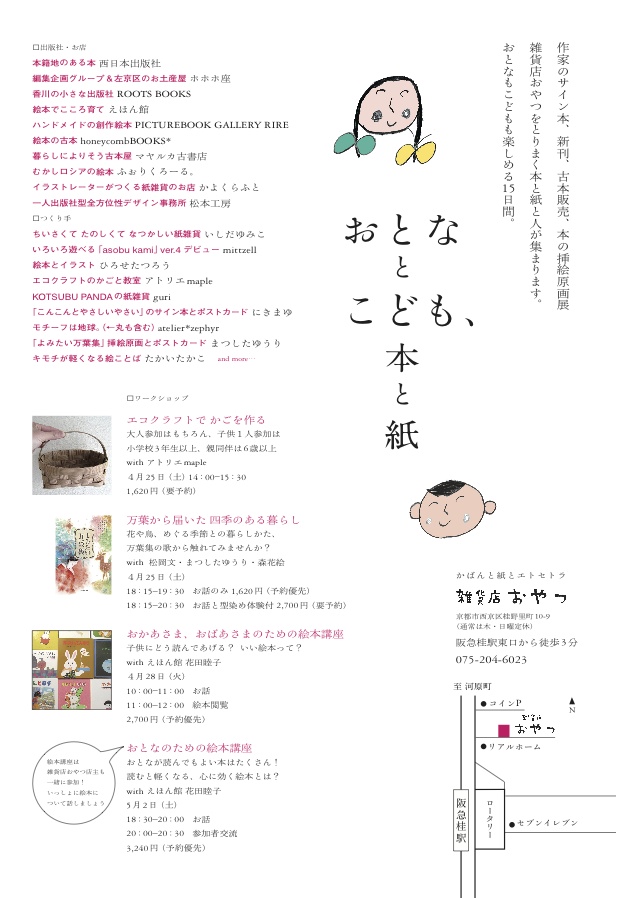 作家のサイン本、新刊、古本販売、本の挿絵原画展
雑貨店おやつをとりまく本と紙と人が集まります。
おとなもこどもも楽しめる15日間。
おとな
と
こども、
本
と
紙
□出版社・お店
本籍地のある本 西日本出版社
編集企画グループ&左京区のお土産屋 ホホホ座
香川の小さな出版社 ROOTS BOOKS
絵本でこころ育て えほん館
ハンドメイドの創作絵本 PICTUREBOOK GALLERY RIRE
絵本の古本 honeycombBOOKS*
暮らしによりそう古本屋 マヤルカ古書店
むかしロシアの絵本 ふぉりくろーる。
イラストレーターがつくる紙雑貨のお店 かよくらふと
一人出版社型全方位性デザイン事務所 松本工房
□つくり手
ちいさくて たのしくて なつかしい紙雑貨 いしだゆみこ
いろいろ遊べる「asobu kami」ver.4 デビュー mittzell
絵本とイラスト ひろせたつろう
エコクラフトのかごと教室 アトリエmaple
KOTSUBU PANDAの紙雑貨 guri
「こんこんとやさしいやさい」のサイン本とポストカード にきまゆ
モチーフは地球。(←丸も含む) atelier*zephyr
「よみたい万葉集」挿絵原画とポストカード まつしたゆうり
キモチが軽くなる絵ことば たかいたかこ and more…
□ワークショップ
エコクラフトで かごを作る
大人参加はもちろん、子供1人参加は
小学校3年生以上、親同伴は6歳以上
with アトリエmaple
4月25日(土) 14:00−15:30
1,620円(要予約)
万葉から届いた 四季のある暮らし
花や鳥、めぐる季節との暮らしかた、
万葉集の歌から触れてみませんか?
with 松岡文・まつしたゆうり・森花絵
4月25日(土)
18:15−19:30 お話のみ 1,620円(予約優先)
18:15−20:30 お話と型染め体験付 2,700円(要予約)
おかあさま、おばあさまのための絵本講座
子供にどう読んであげる? いい絵本って?
with えほん館 花田睦子
4月28日(火)
10:00−11:00 お話
11:00−12:00 絵本閲覧
2,700円(予約優先)
おとなのための絵本講座
おとなが読んでもよい本はたくさん!
読むと軽くなる、心に効く絵本とは?
with えほん館 花田睦子
5月2日(土)
18:30−20:00 お話
20:00−20:30 参加者交流
3,240円(予約優先)
絵本講座は
雑貨店おやつ店主も
一緒に参加!
いっしょに絵本に
ついて話しましょう
かばんと紙とエトセトラ
雑貨店おやつ
京都市西京区桂野里町10-9
(通常は木・日曜定休)
阪急桂駅東口から徒歩3分
075-204-6023
至 河原町
●コインP
N
雑貨店
おやつ
●リアルホーム
阪急桂駅
ロータリー
●セブンイレブン